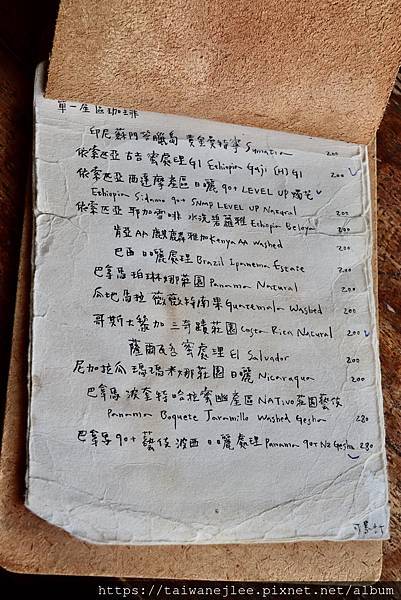 單一產區咖啡
印尼 蘇門答臘島 黃金曼特寧 Sumatra 200
依索匹亞 古吉 蜜處理 G1 Ethiopia Guji [H] G1 200
依索匹亞 西達摩產區 日曬 90+ LEVEL UP
Ethiopia Sidamo 90+ SNAP LEVEL UP Natural 200
依索匹亞 耶加雪啡 水洗 碧蘿雅 Ethiopia Beloya 200
肯亞 AA 麒麟雅加 Kenya AA washed 200
巴西 日曬處理 Brazil Ipanema Estate 200
巴拿馬 珀林娜莊園 Panama Natural 200
瓜地馬拉 薇薇特南果 Guatemala Washed 200
哥斯大黎加 三奇蹟莊園 Costa Rica Natural 200
薩爾瓦多 蜜處理 El Salvador 200
尼加拉瓜 瑪瑞米娜莊園 日曬 Nicaragua 200
巴拿馬 波奎特 哈拉蜜幽產區 NATIVO莊園藝伎
Panama Boquete Jaramillo Washed Gesha 280
巴拿馬 90+ 藝伎 波西 日曬處理 Panama 90+ N2 Gesha 280
https://taiwanejlee.pixnet.net/album